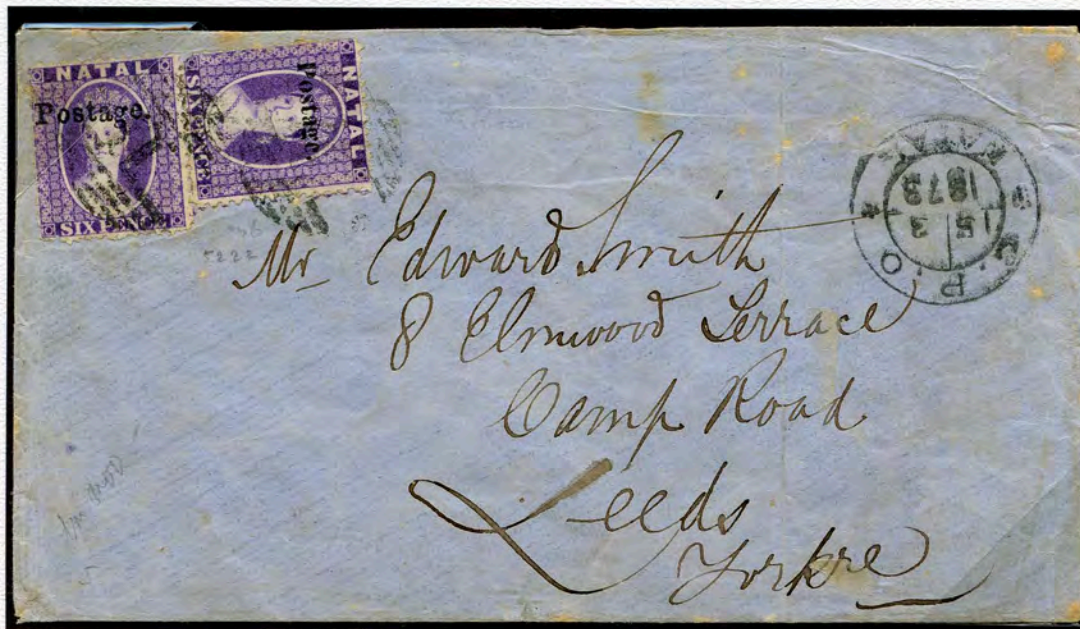 NATAL
Postage.
SIX PENCE
NATAL
Postage.
SIX PENCE
G.P.O
NATAL
15
3
1873
5222
Mr Edward Smith
8 Elmwood Terrace
Camp Road
Leeds
Yorkre